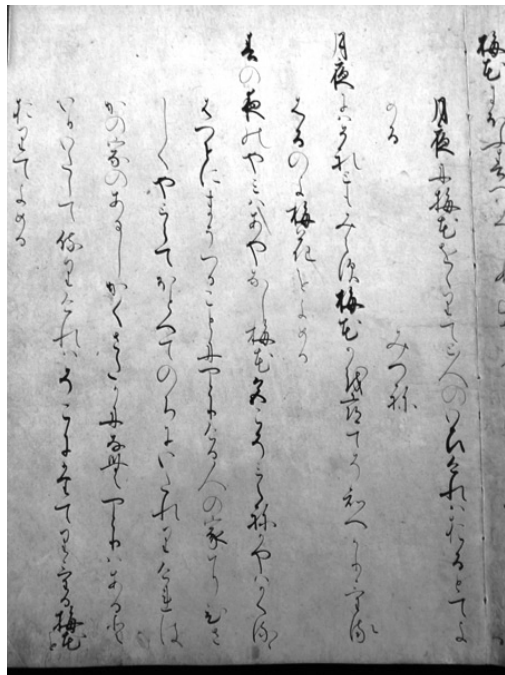 梅花にほふ春へは
月夜に梅花をゝりてと人のいひけれはおるとてよ
める
みつね
月夜にはそれともみえす梅花かを尋てそしるへかりける
はるのよ梅花をよめる
春の夜のやみはあやなし梅花色こそみえねかやはかくるゝ
はつせにまうつることにやとりける人の家にひさ
しくやとらてほとへてのちにいたれりけれは
かの家のあるしかくさたかになむやとりはあると
いひいたして侍りけれはそこにたてりける梅花
をゝりてよめる